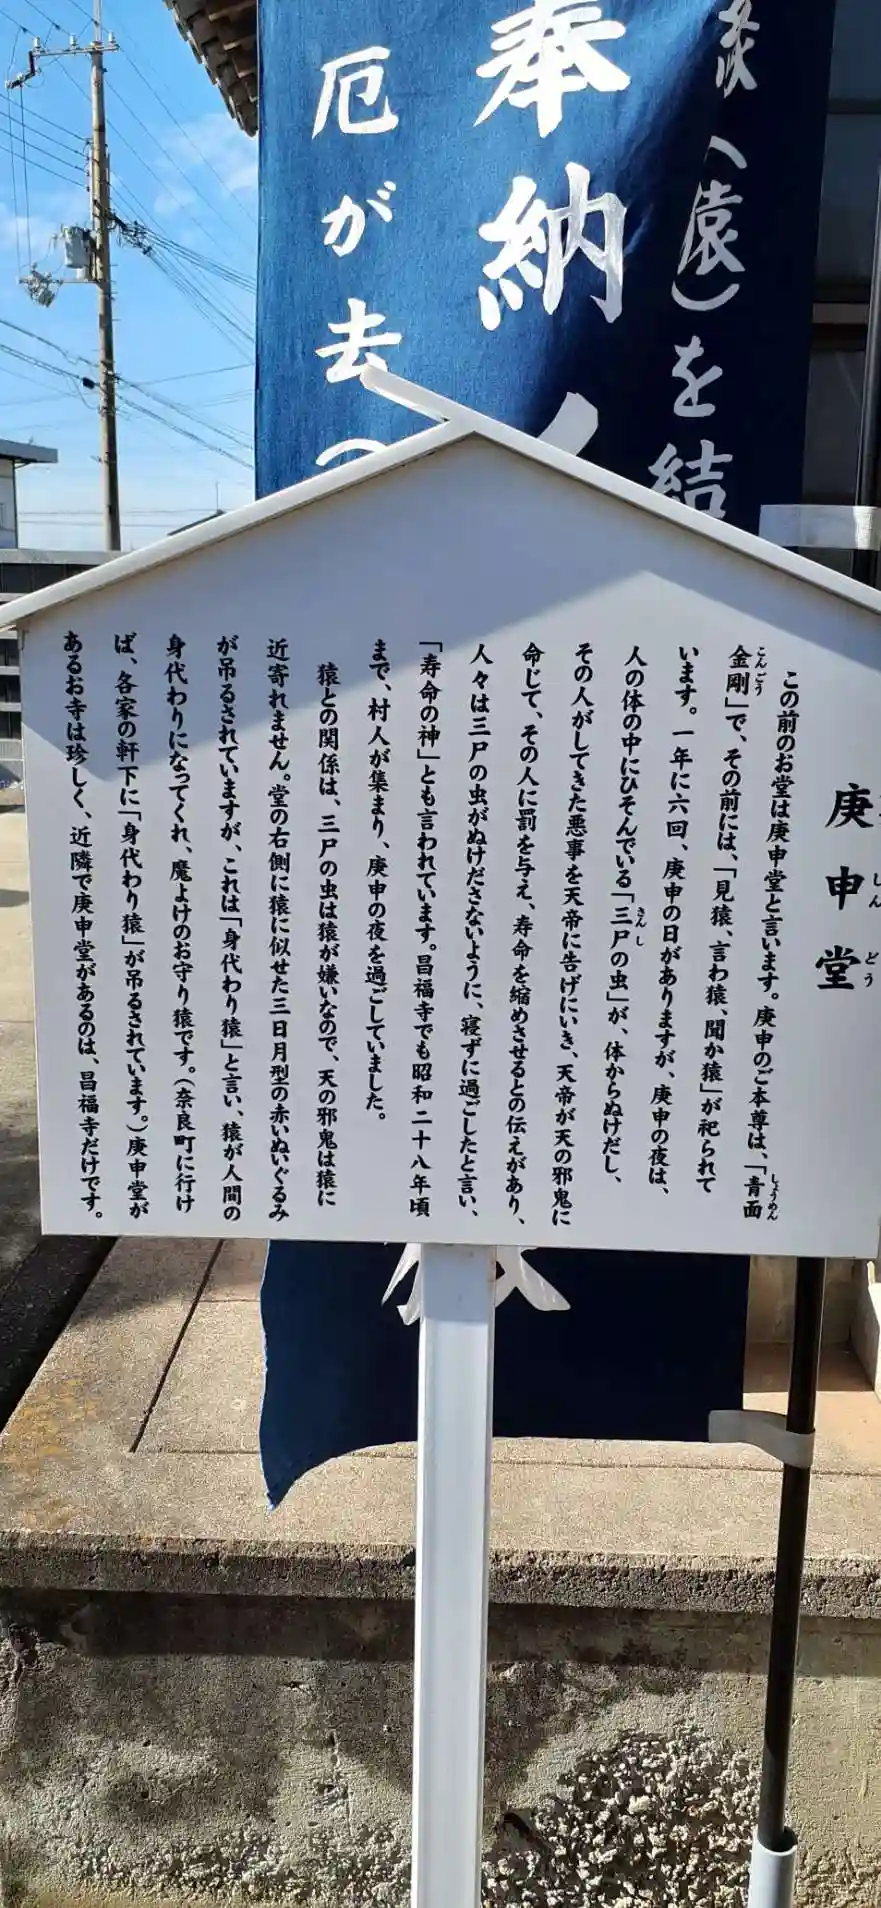 庚申堂
しん
どう
この前のお堂は庚申堂と言います。庚申のご本尊は、「青面
しょうめん
金剛」で、その前には、「見猿、言わ猿、聞か猿」が祀られて
こんごう
います。一年に六回、庚申の日がありますが、庚申の夜は、
人の体の中にひそんでいる「三尸の虫」が、体からぬけだし、
さんし
その人がしてきた悪事を天帝に告げにいき、天帝が天の邪鬼に
命じて、その人に罰を与え、寿命を縮めさせるとの伝えがあり、
人々は三尸の虫がぬけださないように、寝ずに過ごしたと言い、
「寿命の神」とも言われています。昌福寺でも昭和二十八年頃
まで、村人が集まり、庚申の夜を過ごしていました。
猿との関係は、三尸の虫は猿が嫌いなので、天の邪鬼は猿に
近寄れません。堂の右側に猿に似せた三日月型の赤いぬいぐるみ
が吊るされていますが、これは「身代わり猿」と言い、猿が人間の
身代わりになってくれ、魔よけのお守り猿です。(奈良町に行け
ば、各家の軒下に「身代わり猿」が吊るされています。)庚申堂が
あるお寺は珍しく、近隣で庚申堂があるのは、昌福寺だけです。
(園)を結
奉納
厄が去(